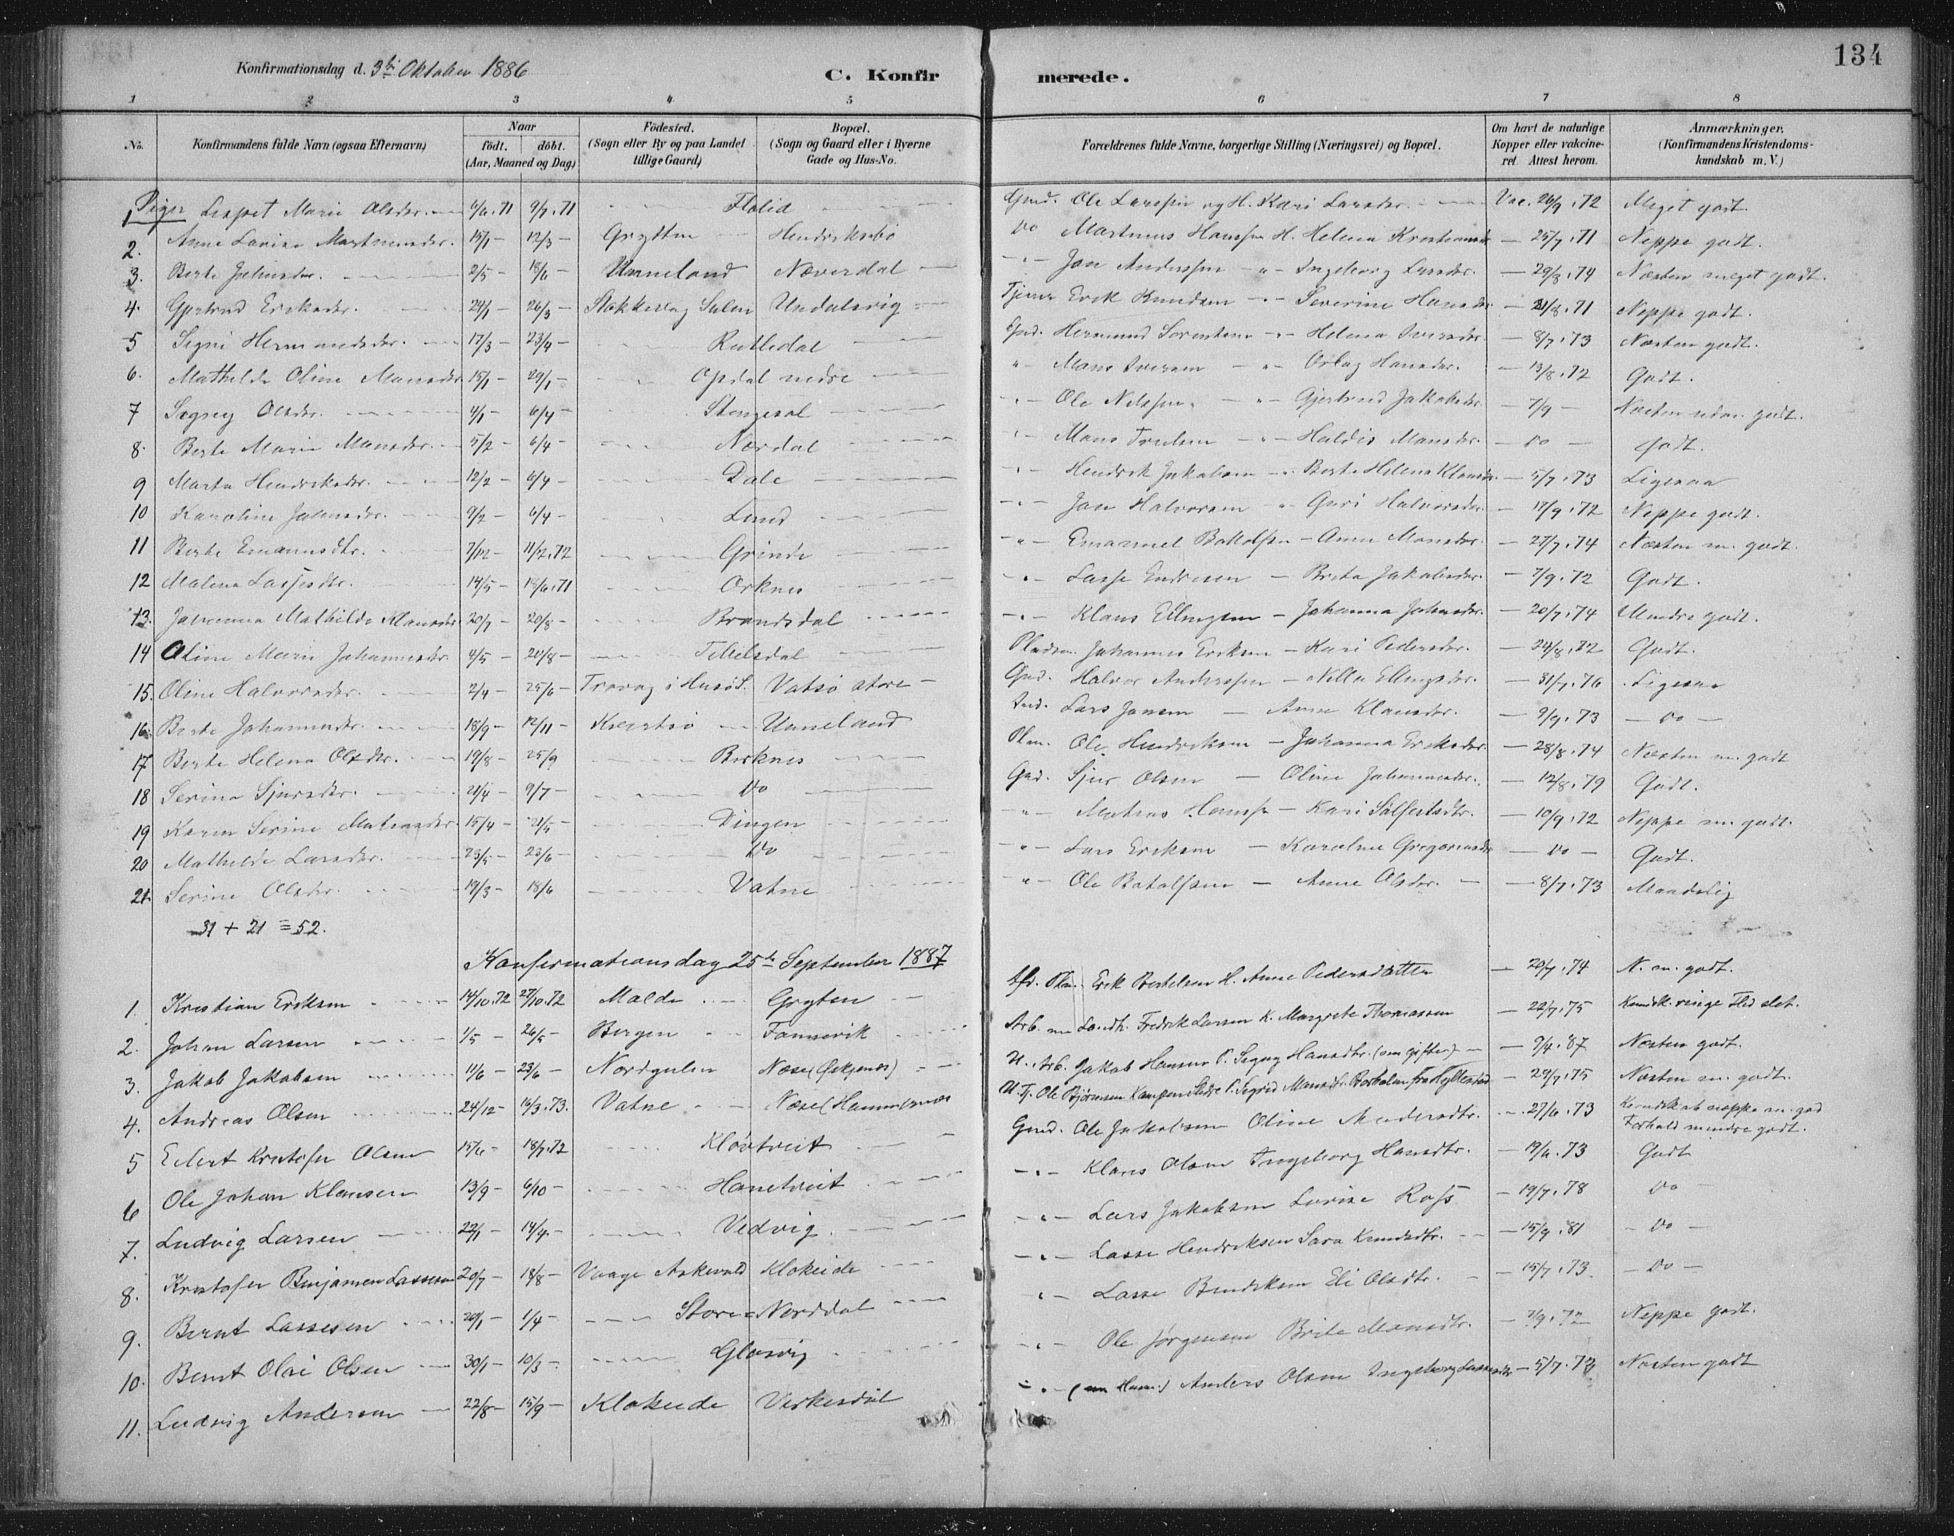 134
Konfirmationsdag d. 3die Oktober 1886
C. Konfirmerede.
1 2 3 4 5 6 7 8
No. Konfirmandens fulde Navn (ogsaa Efternavn) Naar født, døbt. (Aar, Maaned og Dag) Fødested. (Sogn eller By og paa Landet tillige Gaard) Bopæl. (Sogn og Gaard eller i Byerne Gade og Hus-No. Forældrenes fulde Navne, borgerlige Stilling (Næringsvei) og Bopæl. Om havt de naturlige Kopper eller vaccineret. Attest herom. Anmærkninger. (Konfirmandens Kristendomskundskab m. V.)
Piger
1 Marie Olsdtr. 9/7.71 Flolid Gmd. Ole Larssen og H. Kari Larsdtr. Vac. 26/9.72 Meget godt.
2. Anne Lovise Martinusdtr. 15/1 – 12/3 – Grytten Hendriksbø Do Martinus Hanssen H. Helena – 25/7.71 Neppe godt.
3. Berte Johnsdtr. 2/5 – 18/6 – Unneland Næverdal – " – Jon Anderssen – " – Ingeborg Larsdtr. – 29/8.74 Næsten meget godt.
4. Gjertrud Eriksdtr. 24/1 – 26/3 – Stokkevag Sulen Undalsvig Tjener Erik Knudsen – " – Severine Hansdtr – 21/8.71 Neppe godt.
5 Signi Hermundsdtr. 17/3 – 23/4 – Rutledal Gmd. Hermund Sorensen – " – Helena Iversdtr. – 8/7.73 Næsten godt.
6. Mathilde Oline Mansdtr 15/1 – 29/1 – Opdal nedre " – Mons Iversen – " – Hansdtr. – 13/8.72 Godt.
7 Olsdtr. 4/1 – 6/4 – Stengesol – " – Ole Nilssen – " – Gjertrud Jakobsdtr – 7/9 – Næsten godt.
8. Berte Marie Mansdtr. – 5/2 – 6/4 – Nordal – " – Mons – " – Haldis Mansdtr. – Do – Godt.
9 Marta Hendriksdtr. 12/2 – 6/4 – Dale – " – Hendrik Jakobsen – " – Berte Helena Klausdtr – 5/7.73 Ligesaa
10 Karoline Johnsdtr. 9/2 – 6/4 – Lund – " – Jon Halvorsen – " Guri Halvorsdtr. – 17/9.72 Neppe godt.
11 Berte Emanusdtr. 7/12 – 11/2.72 Grinde – " – Emanuel – Anne Mansdtr. – 27/7.74 Næsten m. godt.
12 Malena Lassesdtr. 14/5 – 18/6.71 Orknes – " – Lasse Endresen – Berta Jakobsdtr. – 7/9.72 Godt.
13. Johanna Mathilde Klausdtr 20/7 – 20/8 – Brandsdal – " – Klaus Ellingsen – Johanna Johnsdtr. – 20/7.74 Mindre godt.
14 Oline Marie Johannesdtr. 4/5 – 20/8 – Pladsm. Johannes Eriksen – Kari Pedersdtr. – 24/8.72 Godt.
15. Oline Halvorsdtr. 2/4 – 25/6 – Travag i Husø S. Vatsø store – Gmd. Halvor Anderssen – Nilla Ellingsdtr. – 31/7.76 Ligesaa
16. Berte Johannesdtr. 18/9 – 12/11 – Unneland Ind. Lars Jansen – Anne Klausdtr. – 9/9.73 – Do –
17 Berte Helena Olsdtr. 19/8 – 25/9 Birknes Plm. Ole Hendriksen – Johanna Eriksdtr. – 28/8.74 Næsten m. godt
18 Serina Sjursdtr. 21/4 – 9/7 – Do Gmd. Sjur Olsen – Oline Johannesdtr. – 12/8.79 Godt.
19 Karen Serine Matiasdtr. 15/4 – 21/5 – Dingen " – Matias Hanssen – Kari – 10/9.72 Neppe m. godt.
20 Mathilde Larsdtr. 23/5 – 23/6 – Do – " – Lars Eriksen – Karoline Gregoriusdtr – Do – Godt.
21. Serine Olsdtr. 19/3 – 18/6 Vatne – " Ole Batalfsen – Anne Olsdtr. – – 8/7.73 Maadelig
31 + 21 = 52.
Konfirmationsdag 25de September 1887
1. Kristian Eriksen 14/10.72 27/10.72 Molde Gryten Plm. Erik Bertelsen H. Anne Pedersdatter – 20/7.74 N. m. godt.
2. Johan Larsen 1/5 – 26/5 – Bergen Arb. Fredrik Larsen K. Margrete Thomassen – 22/7.75 Kundsk. ringe Flid slet.
3. Jakob Jakobsen 11/6 – 23/6 – Nordgulen Næse U. Arb. Jakob Hansen P. Hansdtr. (om gifter) – – 9/4.87 Næsten godt.
4. Andreas Olsen 24/12 – 16/3.73. Vatne Næse (Hammernæs U. Tj. Ole Bjørnsen P. Sigrid Mansdtr. fra Hyllestad – 29/7.75 Næsten m. godt.
5 Eilert Kristofer Olsen 15/6 – 18/7.72 Kløvtveit Gmd. Ole Jakobsen Oline Andersdtr. – 27/6.73 Kundskab neppe m. god Forhold mindre godt.
6 Ole Johan Klausen 13/9 – 6/10 – Hanetveit – " – Klaus Olsen Ingeborg Hansdtr. – 19/6.73 Godt
7. Ludvig Larsen 22/1 – 14/4 – Vedvig – " – Lars Jakobsen Lovise – 19/7.78 Do –
8. Kristofer Benjamin Lassesen 20/7 – 18/8 – Vaage Askevold Klokeide – " – Lasse Hendriksen Sara Knudsdtr. – 15/9.81 – Do –
9. Bernt Lassesen 20/1 – 1/4 – Store Norddal – " – Lasse Bendiksen Eli Olsdtr. – 15/7.73. – Do –
10. Bernt Olai Olsen 30/1 – 10/3 – Glosvig – " – Ole Jørgensen Brite Mansdtr. – 7/9.72 Neppe godt.
11. Ludvig Andersen 22/8 – 15/9 – Klokeide – " – Anders Olsen Ingeborg Lassesdtr – 5/7.73 Næsten godt